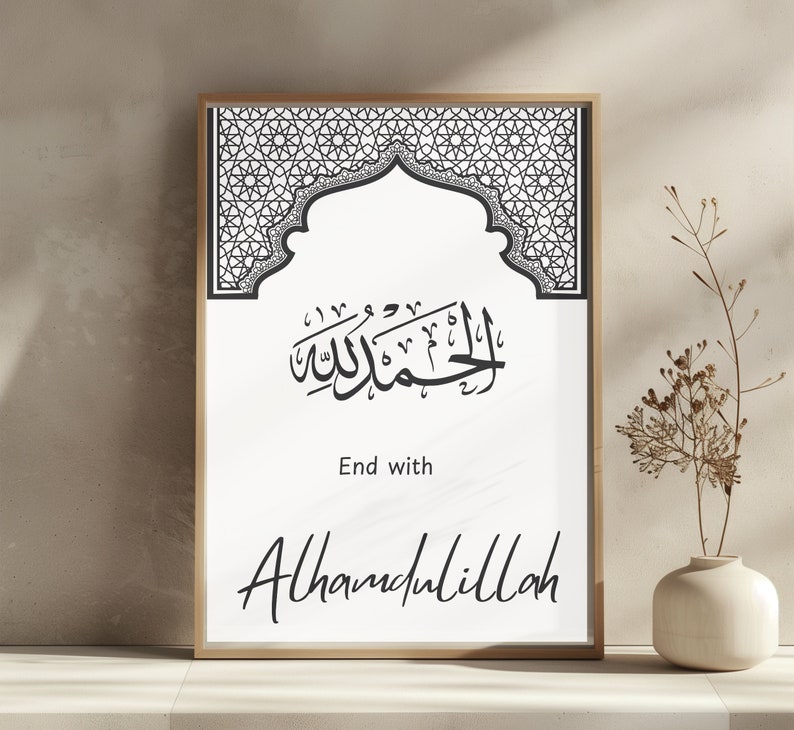 الحمد لله
End with
Alhamdulillah